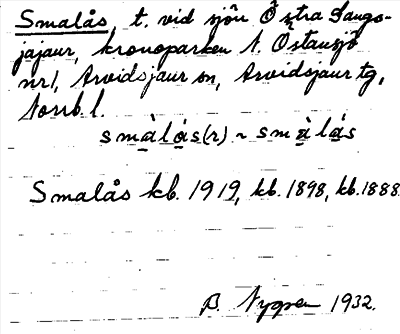 Smalås, t. vid sjön Östra Saugs-
jajaur, kronoparken N. Östansjö
nr 1, Arvidsjaur sn, Arvidsjaur tg,
Norrb. l.
smàlás(r) ~ smàlás
Smalås kb. 1919, kb. 1898, kb. 1888.
B. Nygren 1932.